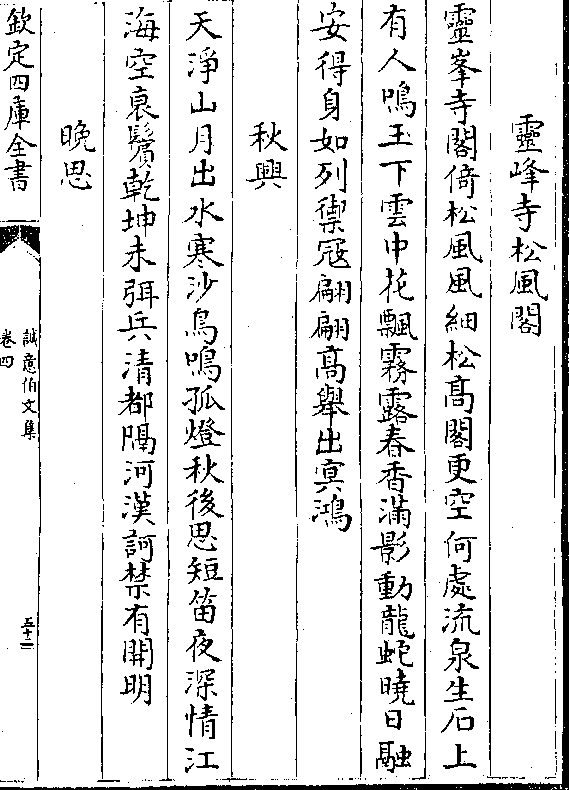 靈峰寺松風閣
靈峯寺閣倚松風風細松髙閣更空何處流泉生石上
有人鳴玉下雲中花飄霧露春香滿影動龍蛇曉日融
安得身如列禦冦翩翩髙舉出冥鴻
秋興
天淨山月出水寒沙鳥鳴孤燈秋後思短笛夜深情江
海空衰鬢乾坤未弭兵清都隔河漢訶禁有開明
晩思
欽定四庫全書
誠意伯文集
卷四
五十二